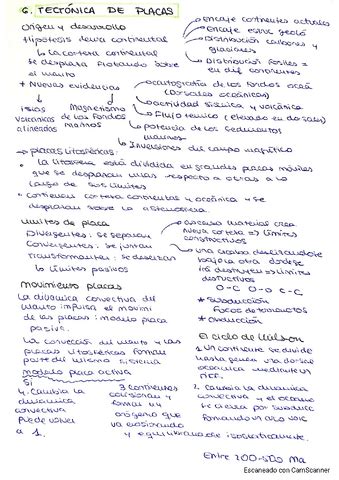 6. TECTÓNICA DE PLACAS
Origen y desarrollo
Hipótesis deriva continental
↳ la corteza continental
se desplaza flotando sobre
el manto
→ encaje continentes actuales
→ encaje
→ Distribución carbones y
glaciares
→ Distribución fósiles =
en dif continentes
* Nuevas evidencias
→ cartografía de los fondos
(Dorsales oceánicas)
→ actividad sísmica y volcánica
→ Flujo térmico (elevado en dorsales)
→ potencia de los sedimentos
marinos
→ Inversiones del campo magnético
Islas
volcánicas
alineadas
Magnetismo
de los fondos
marinos
→ PLACAS LITOSFÉRICAS:
• la litosfera está dividida en grandes placas móviles
que se desplazan unas respecto a otras a lo
largo de sus límites
• contienen corteza continental y oceánica y se
desplazan sobre la astenosfera
Límites de placa
Divergentes: se separan
Convergentes: se juntan
Transformantes: se deslizan
↳ límites pasivos
→ material crea
nueva corteza ⇒ límites
constructivos
→ una placa
bajo la otra donde se
destruyen ⇒ límites
destructivos
O-C O-O C-C
* subducción
Focos de terremotos
* obducción
Movimiento placas
La dinámica convectiva del
manto impulsa el movimi
de las placas: modelo placa
pasiva.
La convección del manto y las
placas litosféricas forman
parte del mismo sistema
modelo placa activa
El ciclo de Wilson
1. Un continente se divide
hasta generar una
oceánica mediante un
rift.
2. Cambia la dinámica
convectiva y el océano
se cierra por subducc
formando un arco volc
3. continentes
colisionan y
forman un
orógeno que
va erosionando
y equilibrandose isostáticamente.
Si
4. Cambia la
dinámica
convectiva
puede volver
a 1.
Entre 200-500 Ma
Escaneado con CamScanner